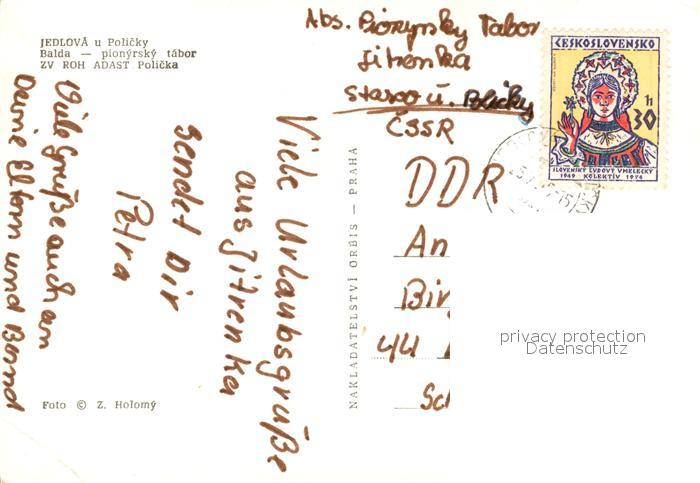 JEDLOVÁ u Poličky
Balda — pionýrský tábor
ZV ROH ADAST Polička
Abs. Pionýrsky Tabor
Jitřenka
Staré u. Poličky
ČSSR
ČESKOSLOVENSKO
30 h
SLOVENSKÝ ĽUDOVÝ UMELECKÝ
1949 KOLEKTÍV 1974
Viele Urlaubsgrüße
aus Jitřenka
sendet Dir
Petra
Viele Grüße auch an
Deine Eltern und Bernd
NAKLADATELSTVÍ ORBIS — PRAHA
DDR
An
Bir
44
Sc
privacy protection
Datenschutz
Foto © Z. Holomý